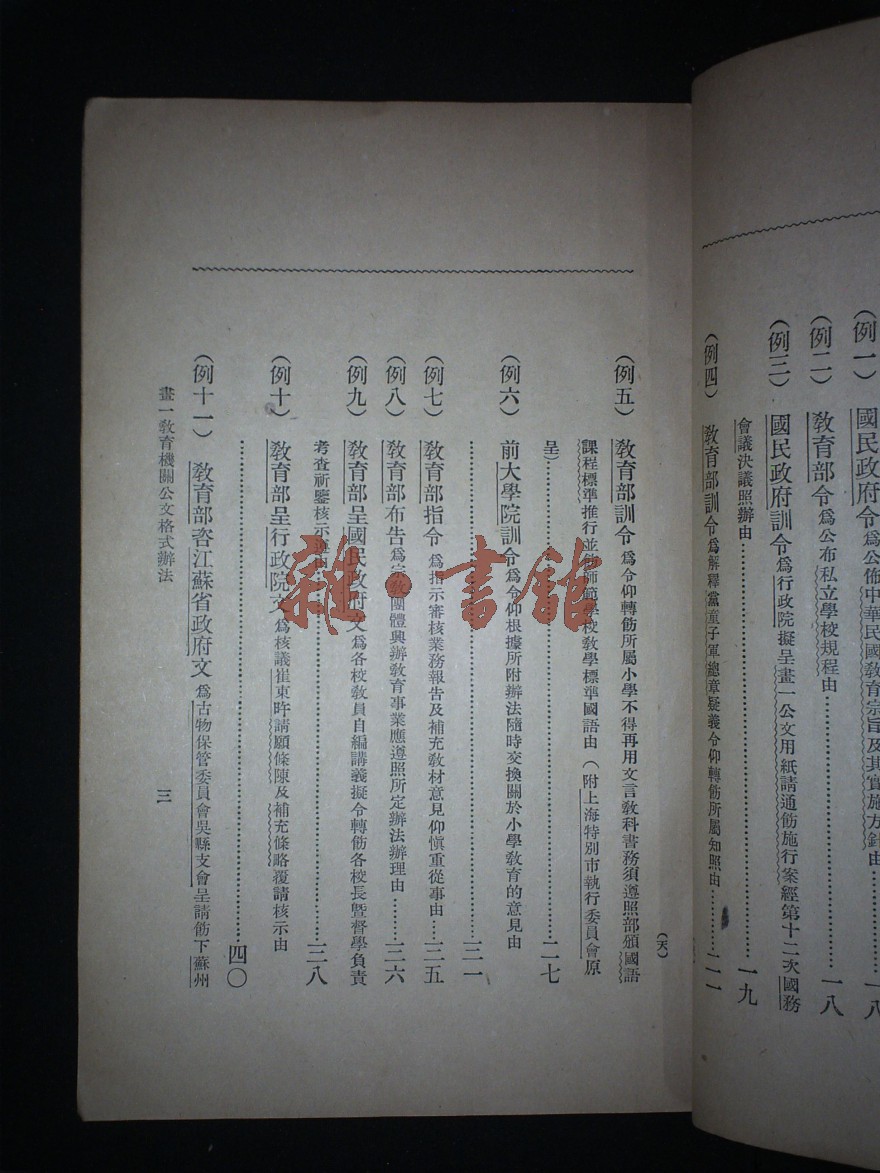 （例一）國民政府令爲公佈中華民國敎育宗旨及其實施方針由
一八
（例二）敎育部令爲公布私立學校規程由………一八
（例三）國民政府訓令爲行政院擬呈畫一公文用紙請通飭施行案經第十二次國務
會議決議照辦由………一九
（例四）敎育部訓令爲解釋黨童子軍總章疑義令仰轉飭所屬知照由………二一
（天）
（例五）敎育部訓令爲令仰轉飭所屬小學不得再用文言敎科書務須遵照部頒國語
課程標準推行並飭師範學校敎學標準國語由（附上海特別市執行委員會原
呈）………二七
（例六）前大學院訓令爲令仰根據所附辦法隨時交換關於小學敎育的意見由
………三一
（例七）敎育部指令爲指示審核業務報告及補充敎材意見仰愼重從事由………三五
（例八）敎育部布告爲宗敎團體興辦敎育事業應遵照所定辦法辦理由………三六
（例九）敎育部呈國民政府文爲各校敎員自編講義擬令轉飭各校長暨督學負責
考查祈鑒核示遵由………三八
（例十）敎育部呈行政院文爲核議崔東旿請願條陳及補充條略覆請核示由
………四〇
（例十一）敎育部咨江蘇省政府文爲古物保管委員會吳縣支會呈請飭下蘇州
畫一敎育機關公文格式辦法
三
雜·書館